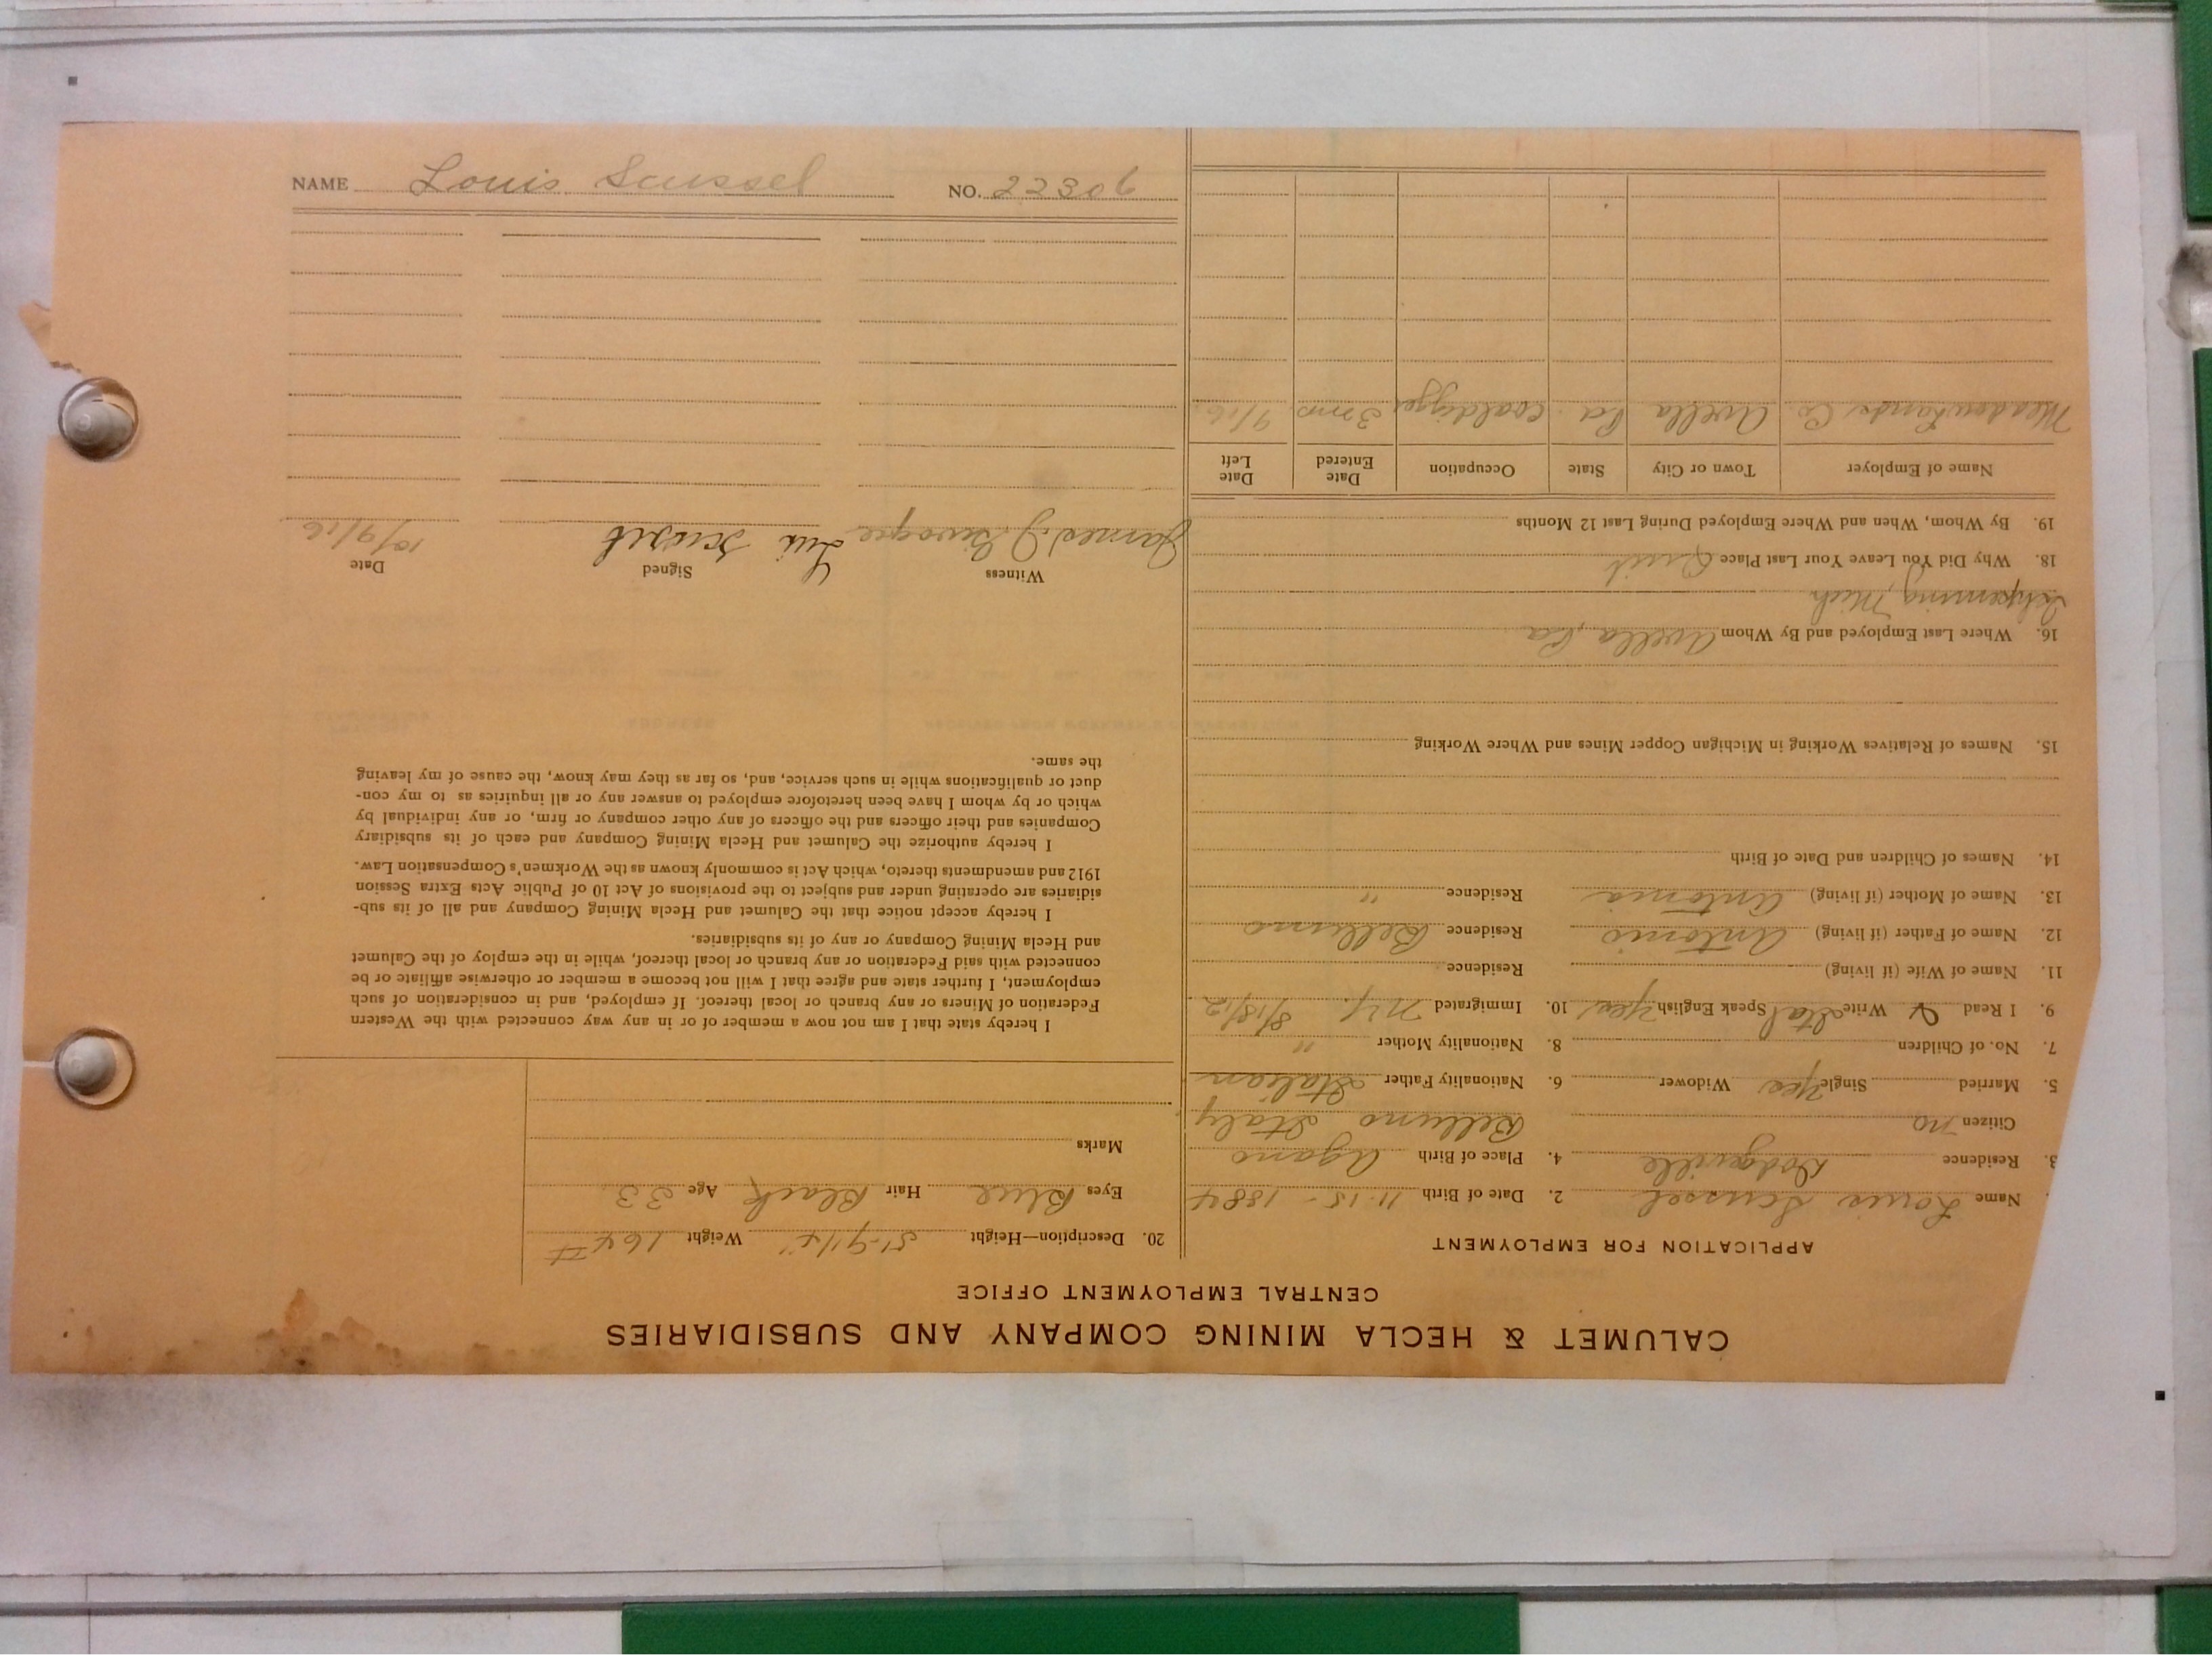 NAME Louis Scussel NO. 22306
CALUMET & HECLA MINING COMPANY AND SUBSIDIARIES
CENTRAL EMPLOYMENT OFFICE
APPLICATION FOR EMPLOYMENT
Name Louis Scussel 2. Date of Birth 11-15-1884
3. Residence Dodgeville 4. Place of Birth Agano
Citizen no Belluno Italy
5. Married Single Yes Widower 6. Nationality Father Italian
7. No. of Children 8. Nationality Mother "
9. I Read & Write Ital Speak English Yes 10. Immigrated N.Y. 8/18/12
11. Name of Wife (if living) Residence
12. Name of Father (if living) Antonio Residence Belluno
13. Name of Mother (if living) Antonia Residence "
14. Names of Children and Date of Birth
15. Names of Relatives Working in Michigan Copper Mines and Where Working
16. Where Last Employed and By Whom Avella, Pa
Ishpeming, Mich
18. Why Did You Leave Your Last Place Quit
19. By Whom, When and Where Employed During Last 12 Months
Name of Employer Town or City State Occupation Date Entered Date Left
Meadowlands Co. Avella Pa. coaldigger 3 mos 9/16.
20. Description—Height 5'-9 1/4" Weight 164 #
Eyes Blue Hair Black Age 33
Marks
I hereby state that I am not now a member of or in any way connected with the Western
Federation of Miners or any branch or local thereof. If employed, and in consideration of such
employment, I further state and agree that I will not become a member or otherwise affiliate or be
connected with said Federation or any branch or local thereof, while in the employ of the Calumet
and Hecla Mining Company or any of its subsidiaries.
I hereby accept notice that the Calumet and Hecla Mining Company and all of its sub-
sidiaries are operating under and subject to the provisions of Act 10 of Public Acts Extra Session
1912 and amendments thereto, which Act is commonly known as the Workmen's Compensation Law.
I hereby authorize the Calumet and Hecla Mining Company and each of its subsidiary
Companies and their officers and the officers of any other company or firm, or any individual by
which or by whom I have been heretofore employed to answer any or all inquiries as to my con-
duct or qualifications while in such service, and, so far as they may know, the cause of my leaving
the same.
Witness Signed Date
James J. Luii Scussel 10/9/16